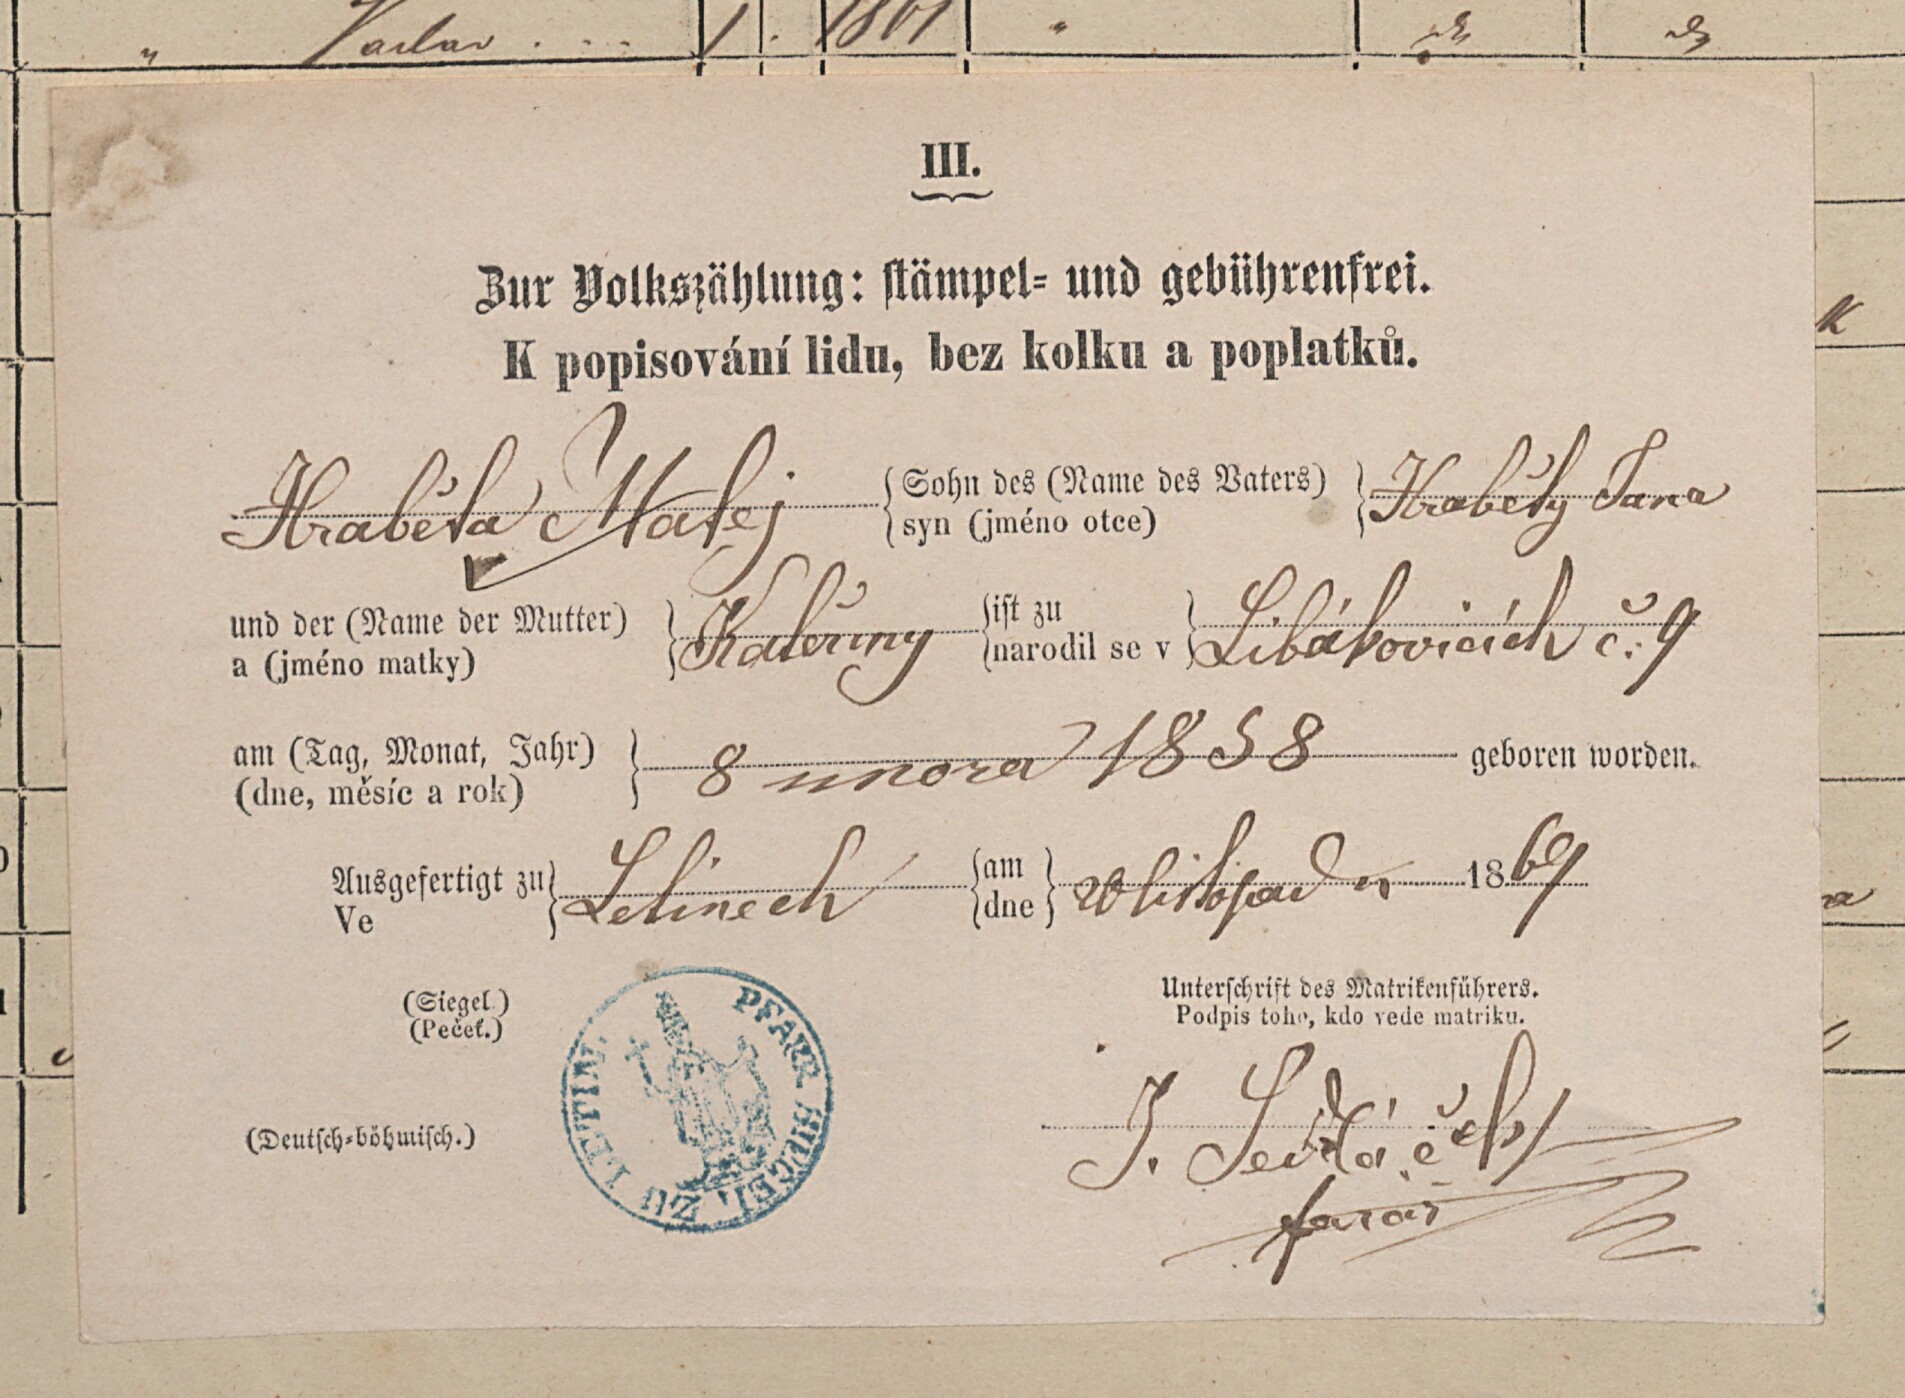 " Vaclav . . . . 1 . 1861 "
III.
Zur Volkszählung: stämpel- und gebührenfrei.
K popisování lidu, bez kolku a poplatků.
Hraběta Matej { Sohn des (Name des Vaters) } Hraběty Jana
syn (jméno otce)
und der (Name der Mutter) } Kateřiny { ist zu } Libákovicích č. 9
a (jméno matky) narodil se v
am (Tag, Monat, Jahr) } 8 unora 1858 geboren worden.
(dne, měsíc a rok)
Ausgefertigt zu } Letinech { am } 20 listopadu 1869
Ve dne
(Siegel.)
(Pečeť.)
Unterschrift des Matrikenführers.
Podpis toho, kdo vede matriku.
PFARR SIEGEL ZU LETTIN.
(Deutsch-böhmisch.)
J. Sedláček
farář